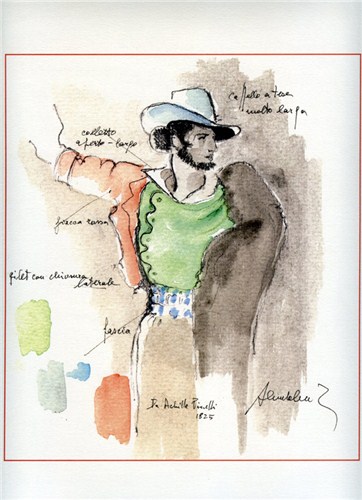 cappello a tesa
molto larga
colletto
aperto - largo
giacca rossa
gilet con chiusura
laterale
fascia
Da Achille Pinelli
1825